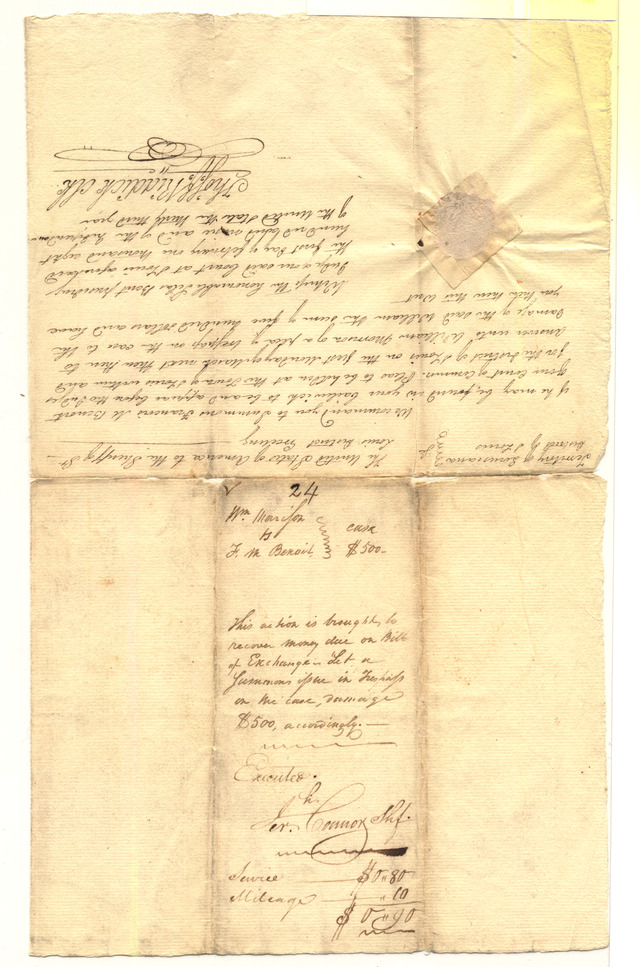 Territory of Louisiana
District of St Louis
The United States of America to the Sheriff of St
Louis District Greeting
We command you to Summons Francois M Benoit
if he may be found in your bailiwick to be and appear before the Judges
of our Court of Common Pleas to be holden at the Town of St Louis within and
for the District of St Louis on the first Monday of March next then then to
answer unto William Morrison of a plea of trespass on the case to the
damage of the said William the sum of five hundred dollars and have
you then there this Writ
Witness the honorable Silas Bent presiding
Judge in our said Court at St Louis aforesaid
the first day of February one thousand eight
hundred and nine and of the Independence
of the United States the thirty third year
Thos F. Riddick Clk
24
Wm Morrison
vs case
F. M. Benoit $500-
This action is brought to
recover money due on Bill
of Exchange. Let a
Summons issue in Trespass
on the case, damage
$500, accordingly.
Executed.
Jerh. Connor Shf.
Service $0"80
Mileage "10
$0"90